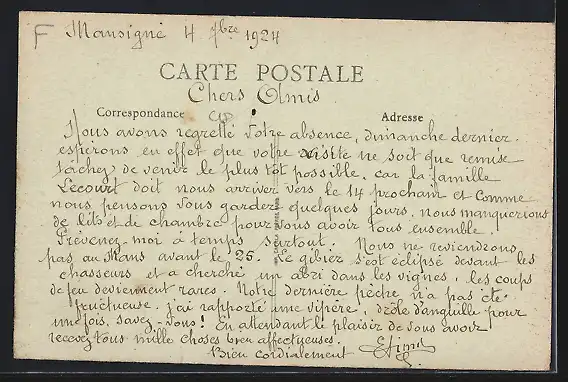 F Mansigné 4 7bre 1924
CARTE POSTALE
Chers Amis
Correspondance
Adresse
Nous avons regretté votre absence, dimanche dernier.
espérons en effet que votre visite ne soit que remise
tâchez de venir le plus tôt possible, car la famille
Lecourt doit nous arriver vers le 14 prochain et comme
nous pensons vous garder quelques jours, nous manquerions
de lits et de chambre pour vous avoir tous ensemble.
Prévenez-moi à temps surtout. Nous ne reviendrons
pas au Mans avant le 25. Le gibier s'est éclipsé devant les
chasseurs et a cherché un abri dans les vignes, les coups
de feu deviennent rares. Notre dernière pêche n'a pas été
fructueuse. j'ai rapporté une vipère, drôle d'anguille pour
une fois, savez-vous! En attendant le plaisir de vous avoir
recevez tous mille choses bien affectueuses.
Bien cordialement